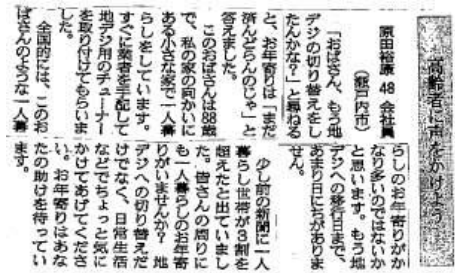 高齢者に声をかけよう
原田裕康 48 会社員
(瀬戸内市)
「おばさん、もう地
デジの切り替えをし
たんかな?」と尋ねる
と、お年寄りは「まだ
済んどらんのじゃ」と
答えました。
このおばさんは88歳
で、私の家の向かいに
ある小さな家で一人暮
らしをしています。
すぐに業者を手配して
地デジ用のチューナー
を取り付けてもらいま
した。
全国的には、このお
ばさんのような一人暮
らしのお年寄りがか
なり多いのではないか
と思います。もう地
デジへの移行日まで、
あまり日にちがありま
せん。
少し前の新聞に一人
暮らし世帯が3割を
超えたと出ていまし
た。皆さんの周りに
も一人暮らしのお年寄
りがいませんか? 地
デジへの切り替えだ
けでなく、日常生活
などでちょっと気に
かけてあげてくださ
い。お年寄りはあな
たの助けを待ってい
ます。